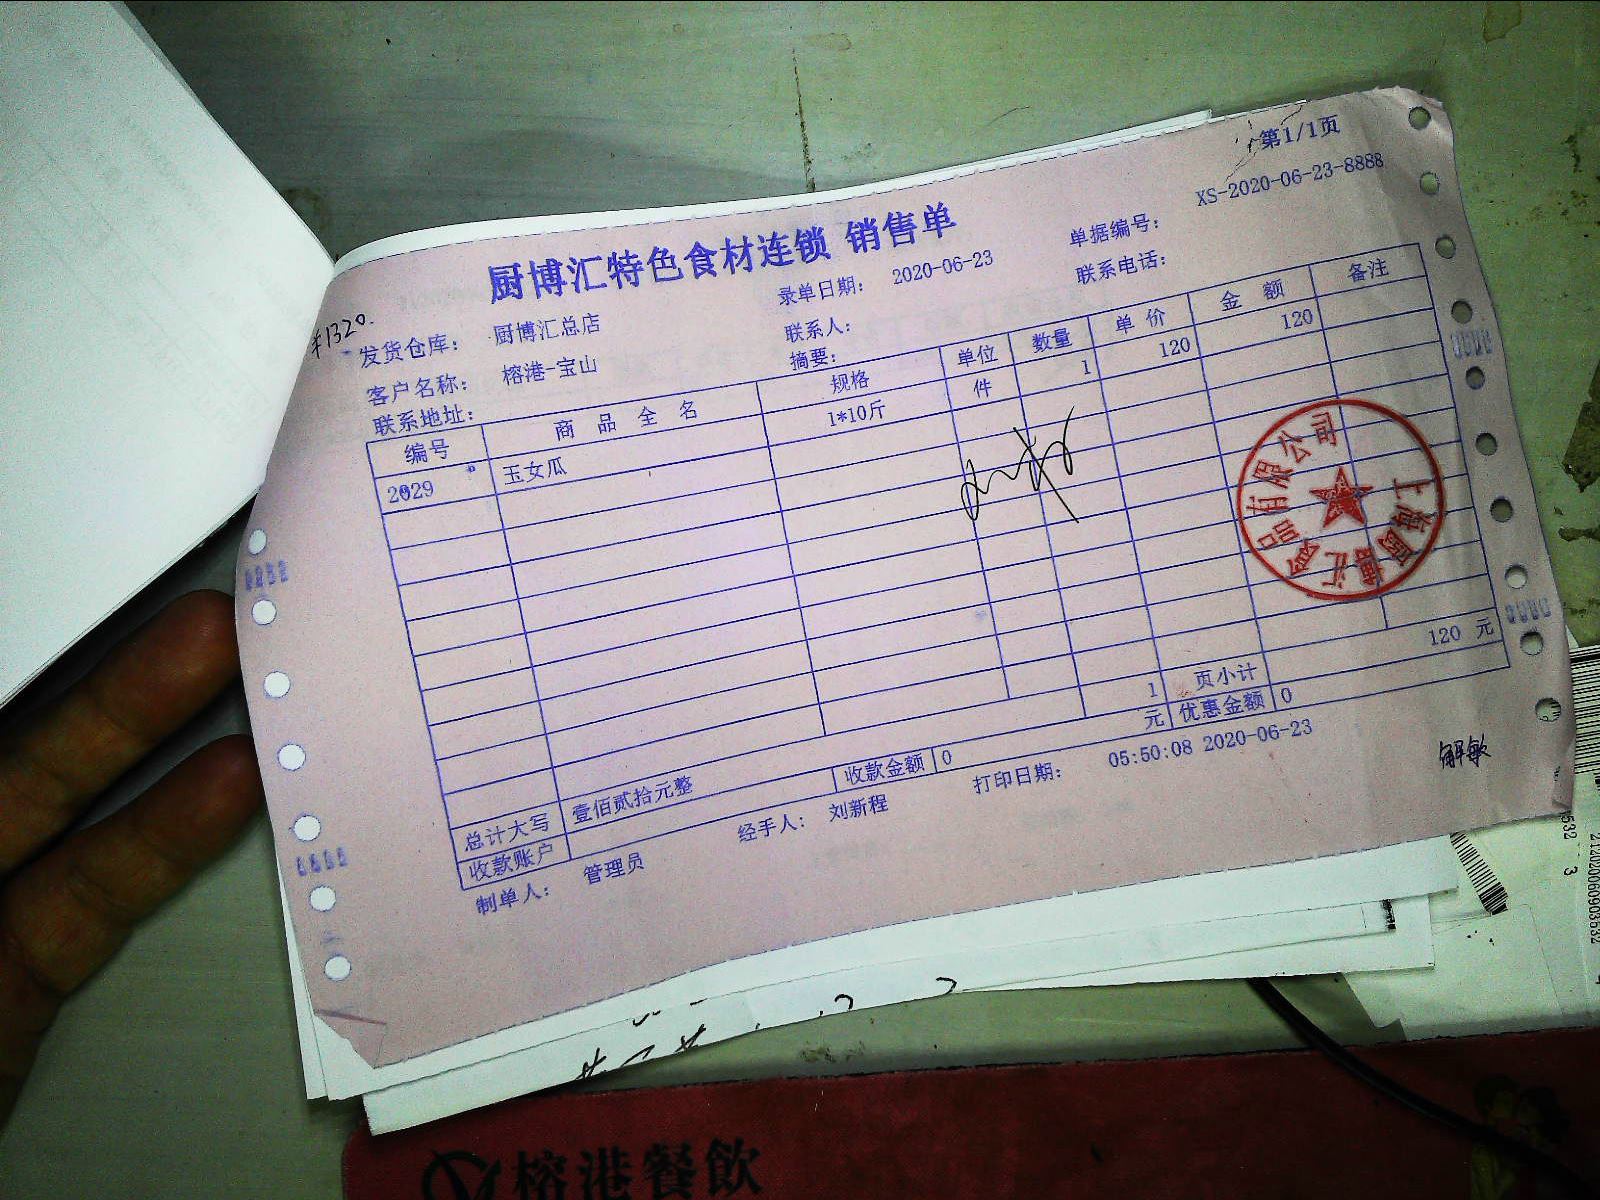 第1/1页
厨博汇特色食材连锁 销售单
单据编号： XS-2020-06-23-8888
录单日期： 2020-06-23
联系电话：
¥1320.
发货仓库： 厨博汇总店
联系人：
客户名称： 榕港-宝山
摘要：
联系地址：
编号 商品全名 规格 单位 数量 单价 金额 备注
2029 玉女瓜 1*10斤 件 1 120 120
1 页小计 120 元
总计大写 壹佰贰拾元整 元
收款账户 收款金额 0 优惠金额 0
制单人： 管理员 经手人： 刘新程 打印日期： 05:50:08 2020-06-23
上海厨博汇食品有限公司
解敏
212020060903532
3
榕港餐飲